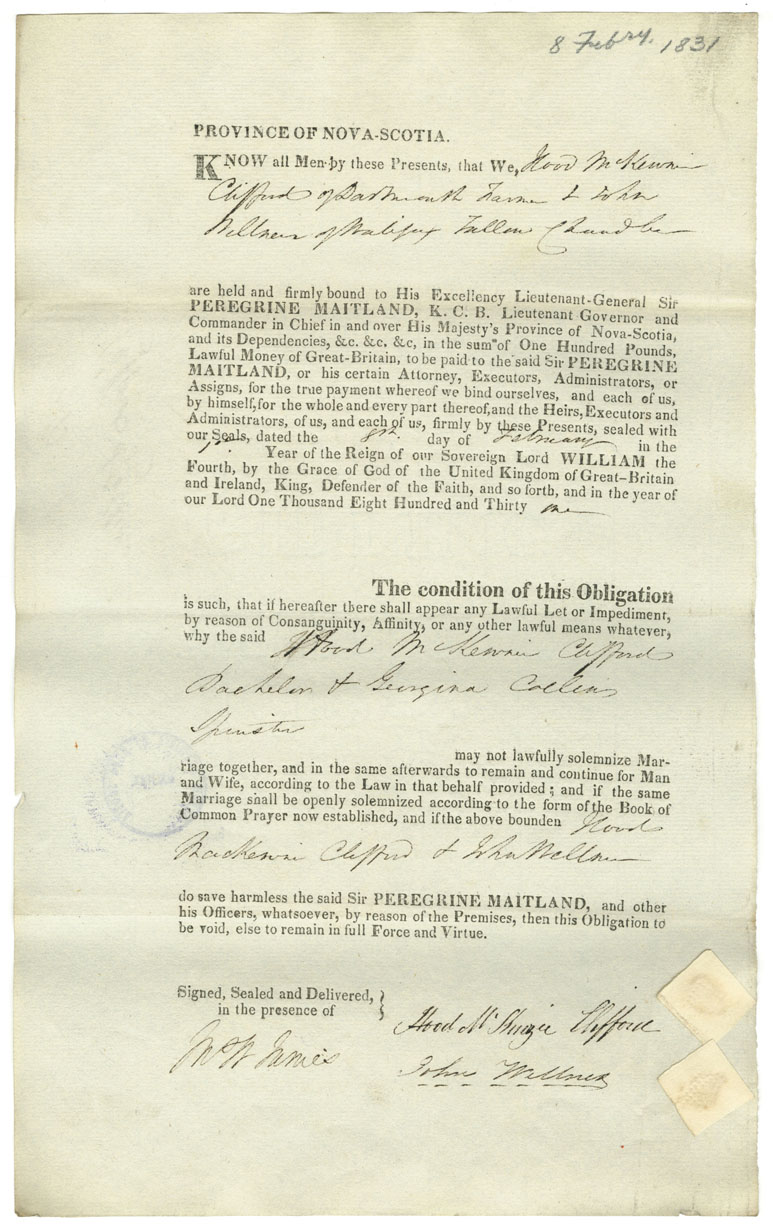 8 Febry. 1831
PROVINCE OF NOVA-SCOTIA.
KNOW all Men by these Presents, that We, Hood McKenzie
Clifford of Dartmouth Farmer & John
Wellner of Halifax Tallow Chandler
are held and firmly bound to His Excellency Lieutenant-General Sir
PEREGRINE MAITLAND, K. C. B. Lieutenant Governor and
Commander in Chief in and over His Majesty's Province of Nova-Scotia,
and its Dependencies, &c. &c. &c, in the sum of One Hundred Pounds,
Lawful Money of Great-Britain, to be paid to the said Sir PEREGRINE
MAITLAND, or his certain Attorney, Executors, Administrators, or
Assigns, for the true payment whereof we bind ourselves, and each of us,
by himself, for the whole and every part thereof, and the Heirs, Executors and
Administrators, of us, and each of us, firmly by these Presents, sealed with
our Seals, dated the 8th. day of February in the
Year of the Reign of our Sovereign Lord WILLIAM the
Fourth, by the Grace of God of the United Kingdom of Great-Britain
and Ireland, King, Defender of the Faith, and so forth, and in the year of
our Lord One Thousand Eight Hundred and Thirty one
The condition of this Obligation
is such, that if hereafter there shall appear any Lawful Let or Impediment,
by reason of Consanguinity, Affinity, or any other lawful means whatever,
why the said Hood McKenzie Clifford
Bachelor & Georgina Collins
Spinster
may not lawfully solemnize Mar-
riage together, and in the same afterwards to remain and continue for Man
and Wife, according to the Law in that behalf provided; and if the same
Marriage shall be openly solemnized according to the form of the Book of
Common Prayer now established, and if the above bounden Hood
MacKenzie Clifford & John Wellner
do save harmless the said Sir PEREGRINE MAITLAND, and other
his Officers, whatsoever, by reason of the Premises, then this Obligation to
be void, else to remain in full Force and Virtue.
Signed, Sealed and Delivered,
in the presence of
Hood McKenzie Clifford
James
John Wellner